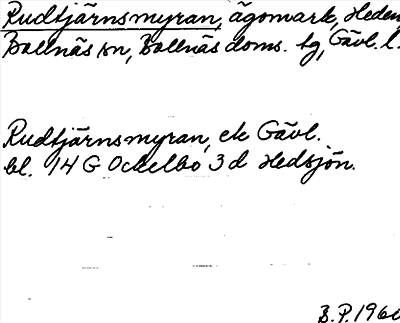 Rudtjärnsmyran, ägomark, Heden
Bollnäs sn, Bollnäs doms. tg, Gävl. l.
Rudtjärnsmyran, ek Gävl.
bl. 14 G Ockelbo 3 d Hedsjön.
B.P. 196